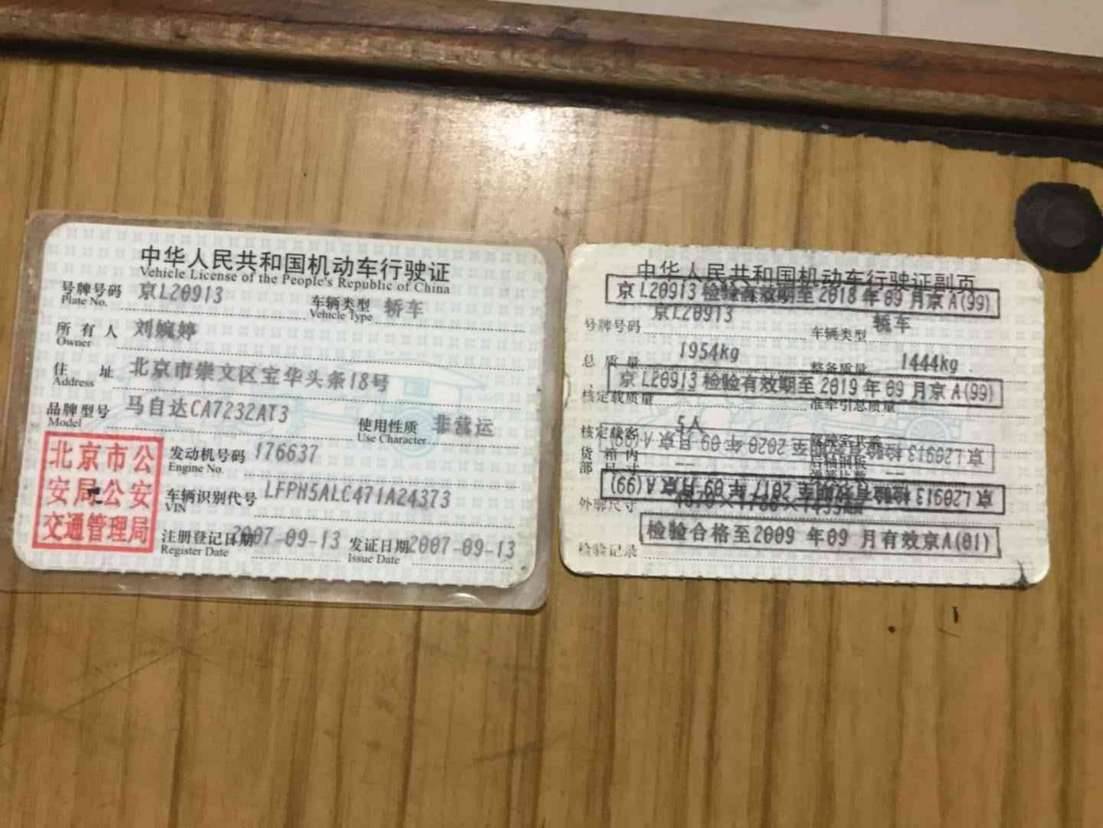 中华人民共和国机动车行驶证
Vehicle License of the People's Republic of China
号牌号码 京L20913 车辆类型 轿车
Plate No. Vehicle Type
所有人 刘婉婷
Owner
住址 北京市崇文区宝华头条18号
Address
品牌型号 马自达CA7232AT3 使用性质 非营运
Model Use Character
北京市公
安局公安
交通管理局
发动机号码 176637
Engine No.
车辆识别代号 LFPH5ALC471A24373
VIN
注册登记日期 2007-09-13 发证日期 2007-09-13
Register Date Issue Date
中华人民共和国机动车行驶证副页
京L20913检验有效期至2018年09月京A(99)
号牌号码 京L20913 车辆类型 轿车
总质量 1954kg 整备质量 1444kg
京L20913检验有效期至2019年09月京A(99)
核定载质量 准牵引总质量
核定载客 5人
京L20913检验有效期至2020年09月京A(99)
货箱内
部尺寸
京L20913检验有效期至2017年09月京A(99)
外廓尺寸
检验合格至2009年09月有效京A(01)
检验记录